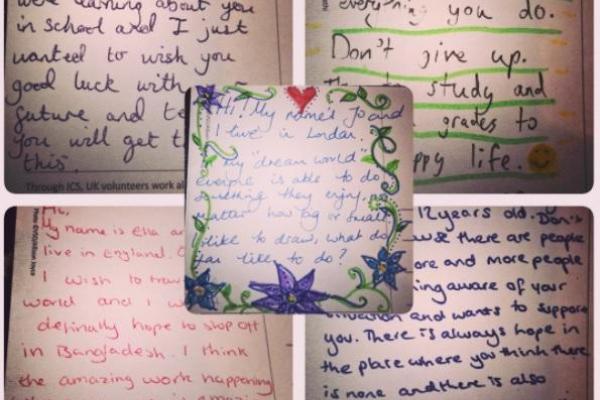 were learning about you
in school and I just
wanted to wish you
good luck with
future and
you will get
this.
Through ICS, UK volunteers work
everything you do.
Don't give up.
study and
grades to
happy life.
Hi! My name's Jo and
I live in London.
my "dream world"
everyone is able to do
something they enjoy, no
matter how big or small
I like to draw, what do
like to do?
Hi,
My name is Ella
live in England.
I wish to
world and I
definally hope to stop off
in Bangladesh. I think
the amazing work happening
12 years old. Don't
there are people
more and more people
aware of your
situation and wants to support
you. There is always hope in
the place where you think there
is none and there is also